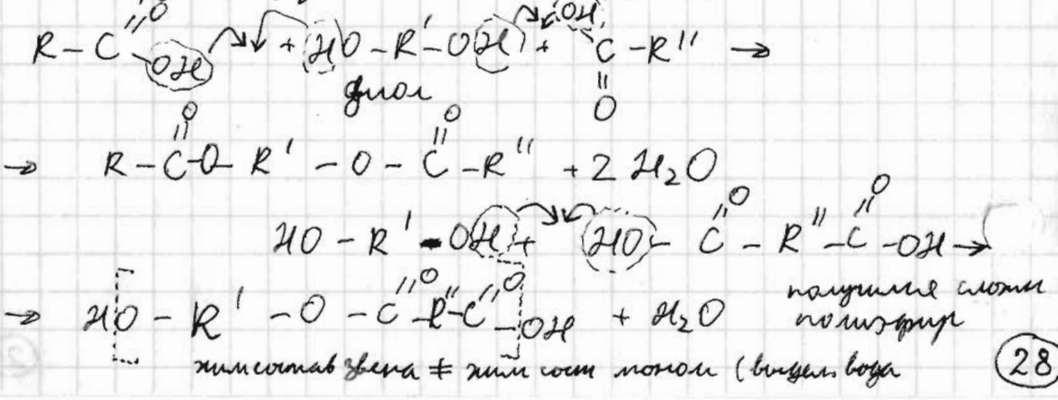 R – C(=O) – OH + HO – R' – OH + OH – C(=O) – R'' →
диол
→ R – C(=O) – O – R' – O – C(=O) – R'' + 2 H₂O
HO – R' – OH + HO – C(=O) – R'' – C(=O) – OH →
→ HO – R' – O – C(=O) – R'' – C(=O) – OH + H₂O
получился сложн
полиэфир
хим состав звена ≠ хим сост моном (выдел. вода
28